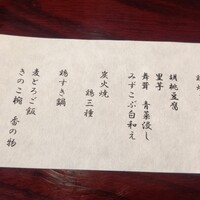 胡桃豆腐
里芋
舞茸 青菜浸し
みずこぶ白和え
炭火焼
鶏三種
鶏すき鍋
麦とろご飯
きのこ椀 香の物